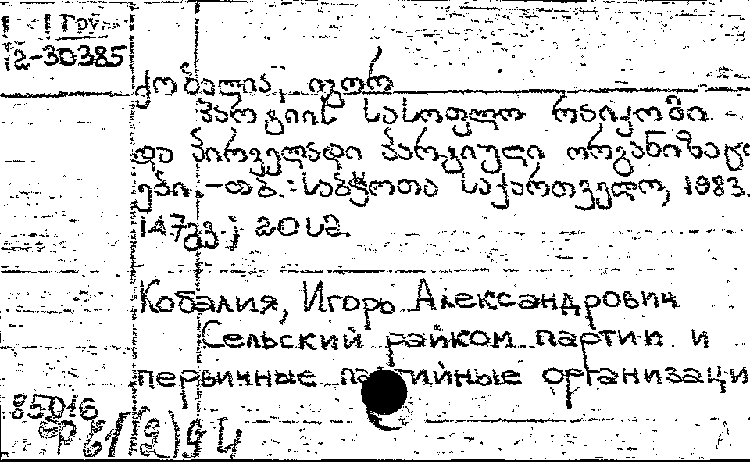 Гру.
12-30385
ქობალია, იგორ
პარტიის სასოფლო რაიკომი
და პირველადი პარტიული ორგანიზაცი
ები. - თბ.: საბჭოთა საქართველო, 1983.
147გვ.; 20სმ.
Кобалия, Игорь Александрович
Сельский райком партии и
первичные партийные организаци
85016